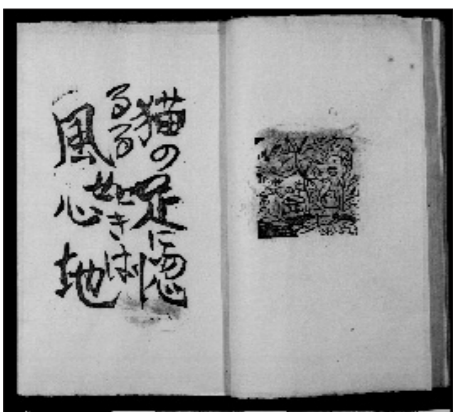 猫の足に惚
るる如きは
風心地